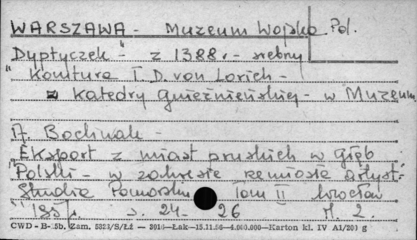 WARSZAWA - Muzeum Wojska Pol.
Dyptyczek - z 1388 r. - srebny
"Komtura T. D. von Lorich -
z Katedry gnieźnieńskiej - w Muzeum
A. Bochnak -
"Eksport z miast pruskich w głąb
Polski - w zakresie remiosła artyst.
Studia Pomorskie tom II Wrocław
1957 s. 24-26
CWD-B-5b. Zam. 5321/S/Łż — Łak—15.11.56—4.000.000—Karton kl. IV A1/200 g